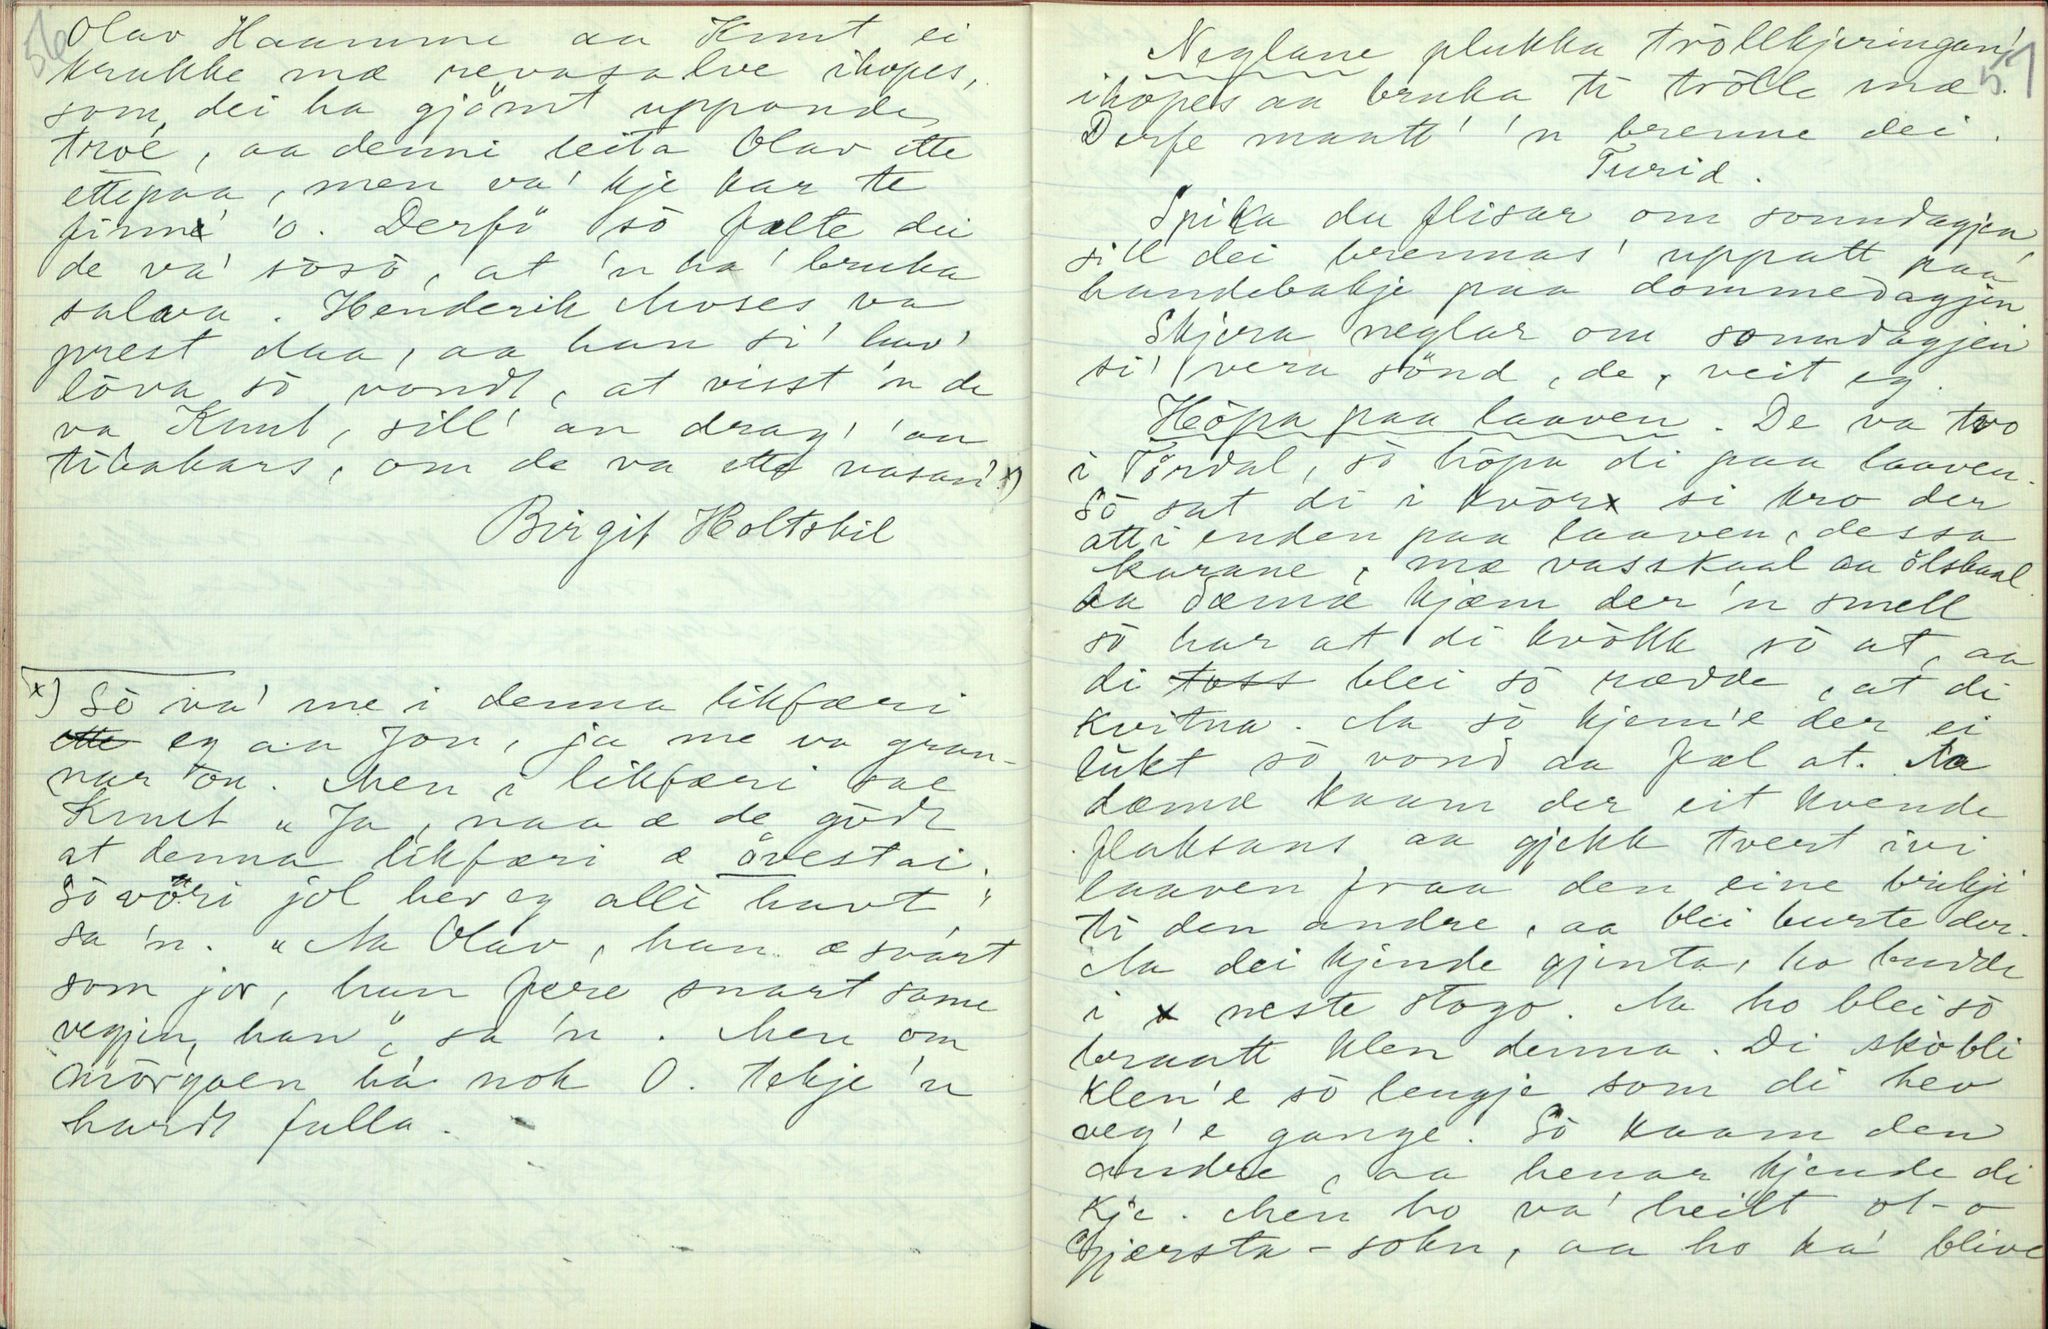 56
Olav Haamme aa Knut ei
krukke mæ revasalve ihopes,
som dei ha gjömt uppunde
troe, aa denni leita Olav ette
ettepaa, men va' kje kar te
finne 'o. Derfö so fælte dei
de va' soso, at 'n ha' bruka
salva. Henderik Moses va
prest daa, aa han si' hav'
lova so vondt, at visst 'n de
va Knut, sill' an drag' 'an
tibakars, om de va ette nasan' x)
Birgit Holtskil
x) So va' me i denna likfæri
eg aa Jon, ja me va gran-
nar 'ton. Men i likfæri sae
Knut "Ja, naa æ de godt
at denna likfæri æ övestai.
So vöri jol hev eg alli havt"
sa 'n. "Aa Olav, han æ svart
som jor, han fære snart same
vegjen, han", sa 'n. Men om
morgoen ha nok O. tekje 'n
hardt fulla.
57
Neglane plukka tröllkjeringan'
ihopes aa bruka ti trölle mæ.
Derfe maatt' 'n brenne dei.
Turid.
Spika du flisar om sonndagjen
sill dei brennas' uppatt paa
handebakje paa dommedagjen
Skjera neglar om sonndagjen
si' vera sönd, de, veit eg.
Höpa paa laaven. De va tvo
i Tördal, so höpa di paa laaven.
So sat di i kvör si kro der
att i enden paa laaven, dessa
karane, mæ vasskaal aa ölskaal.
Aa dæmæ kjæm der 'n smell
so har at di kvökk so at, aa
di blei so rædde, at di
kvitna. Aa so kjem'e der ei
lukt so vond aa fæl at. Aa
dæmæ kaam der eit kvende
flaksans aa gjekk tvert ivi
laaven fraa den eine brikji
ti den andre, aa blei burte der.
Aa dei kjende gjenta, ho budde
i neste stogo. Aa ho blei so
braatt klen denna. Di sko bli
klen'e so lengje som di hev
veg'e gange. So kaam den
andre, aa henar kjende di
kje. Men ho va' heilt ot-o
Gjærsta-sokn, aa ho ha' blive